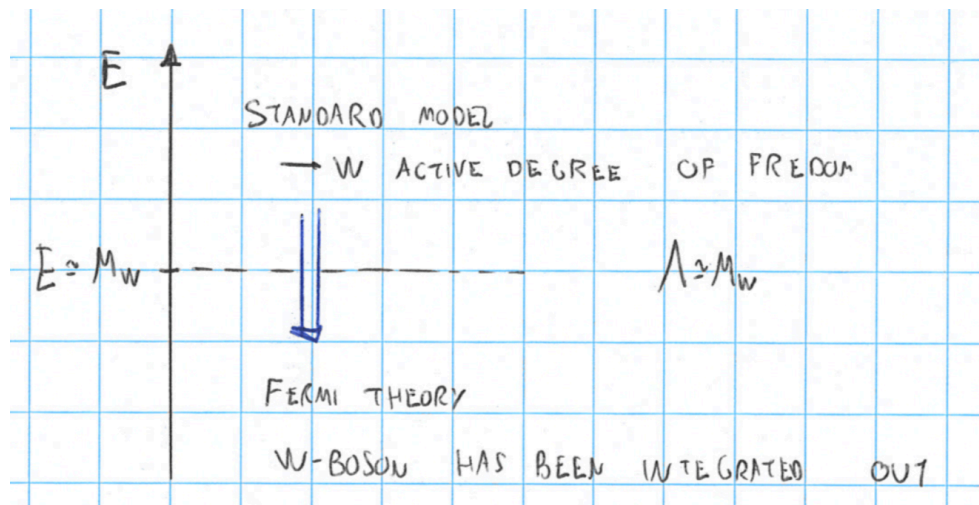 E
STANDARD MODEL
→ W ACTIVE DEGREE OF FREDOM
E ≃ M_W Λ ≃ M_W
FERMI THEORY
W-BOSON HAS BEEN INTEGRATED OUT